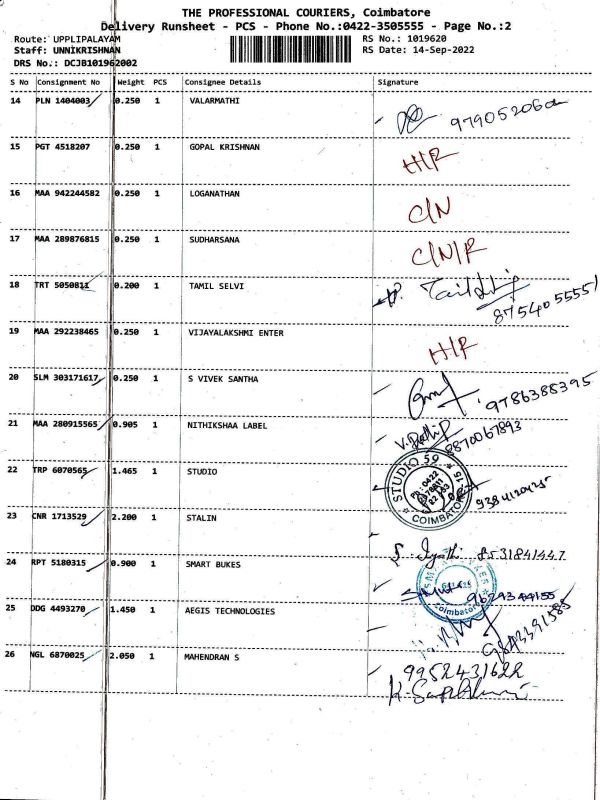 THE PROFESSIONAL COURIERS, Coimbatore
Delivery Runsheet - PCS - Phone No.:0422-3505555 - Page No.:2
Route: UPPLIPALAYAM RS No.: 1019620
Staff: UNNIKRISHNAN RS Date: 14-Sep-2022
DRS No.: DCJB101962002
S No Consignment No Weight PCS Consignee Details Signature
14 PLN 1404003 0.250 1 VALARMATHI
15 PGT 4518207 0.250 1 GOPAL KRISHNAN H/R
16 MAA 942244582 0.250 1 LOGANATHAN C/N
17 MAA 289876815 0.250 1 SUDHARSANA C/N/R
18 TRT 5050811 0.200 1 TAMIL SELVI
8754055551
19 MAA 292238465 0.250 1 VIJAYALAKSHMI ENTER H/R
20 SLM 303171617 0.250 1 S VIVEK SANTHA 9786388395
21 MAA 280915565 0.905 1 NITHIKSHAA LABEL 8870067893
22 TRP 6070565 1.465 1 STUDIO STUDIO 59 COIMBATORE
23 CNR 1713529 2.200 1 STALIN
8531841447
24 RPT 5180315 0.900 1 SMART BUKES Coimbatore
9629344155
25 DDG 4493270 1.450 1 AEGIS TECHNOLOGIES
26 NGL 6870025 2.050 1 MAHENDRAN S